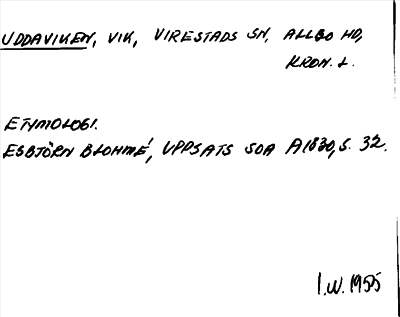 UDDAVIKEN, VIK, VIRESTADS SN, ALLBO HD,
KRON. L.
ETYMOLOGI.
ESBJÖRN BLOHMÉ, UPPSATS SOA A1830, S. 32.
I.W. 1955